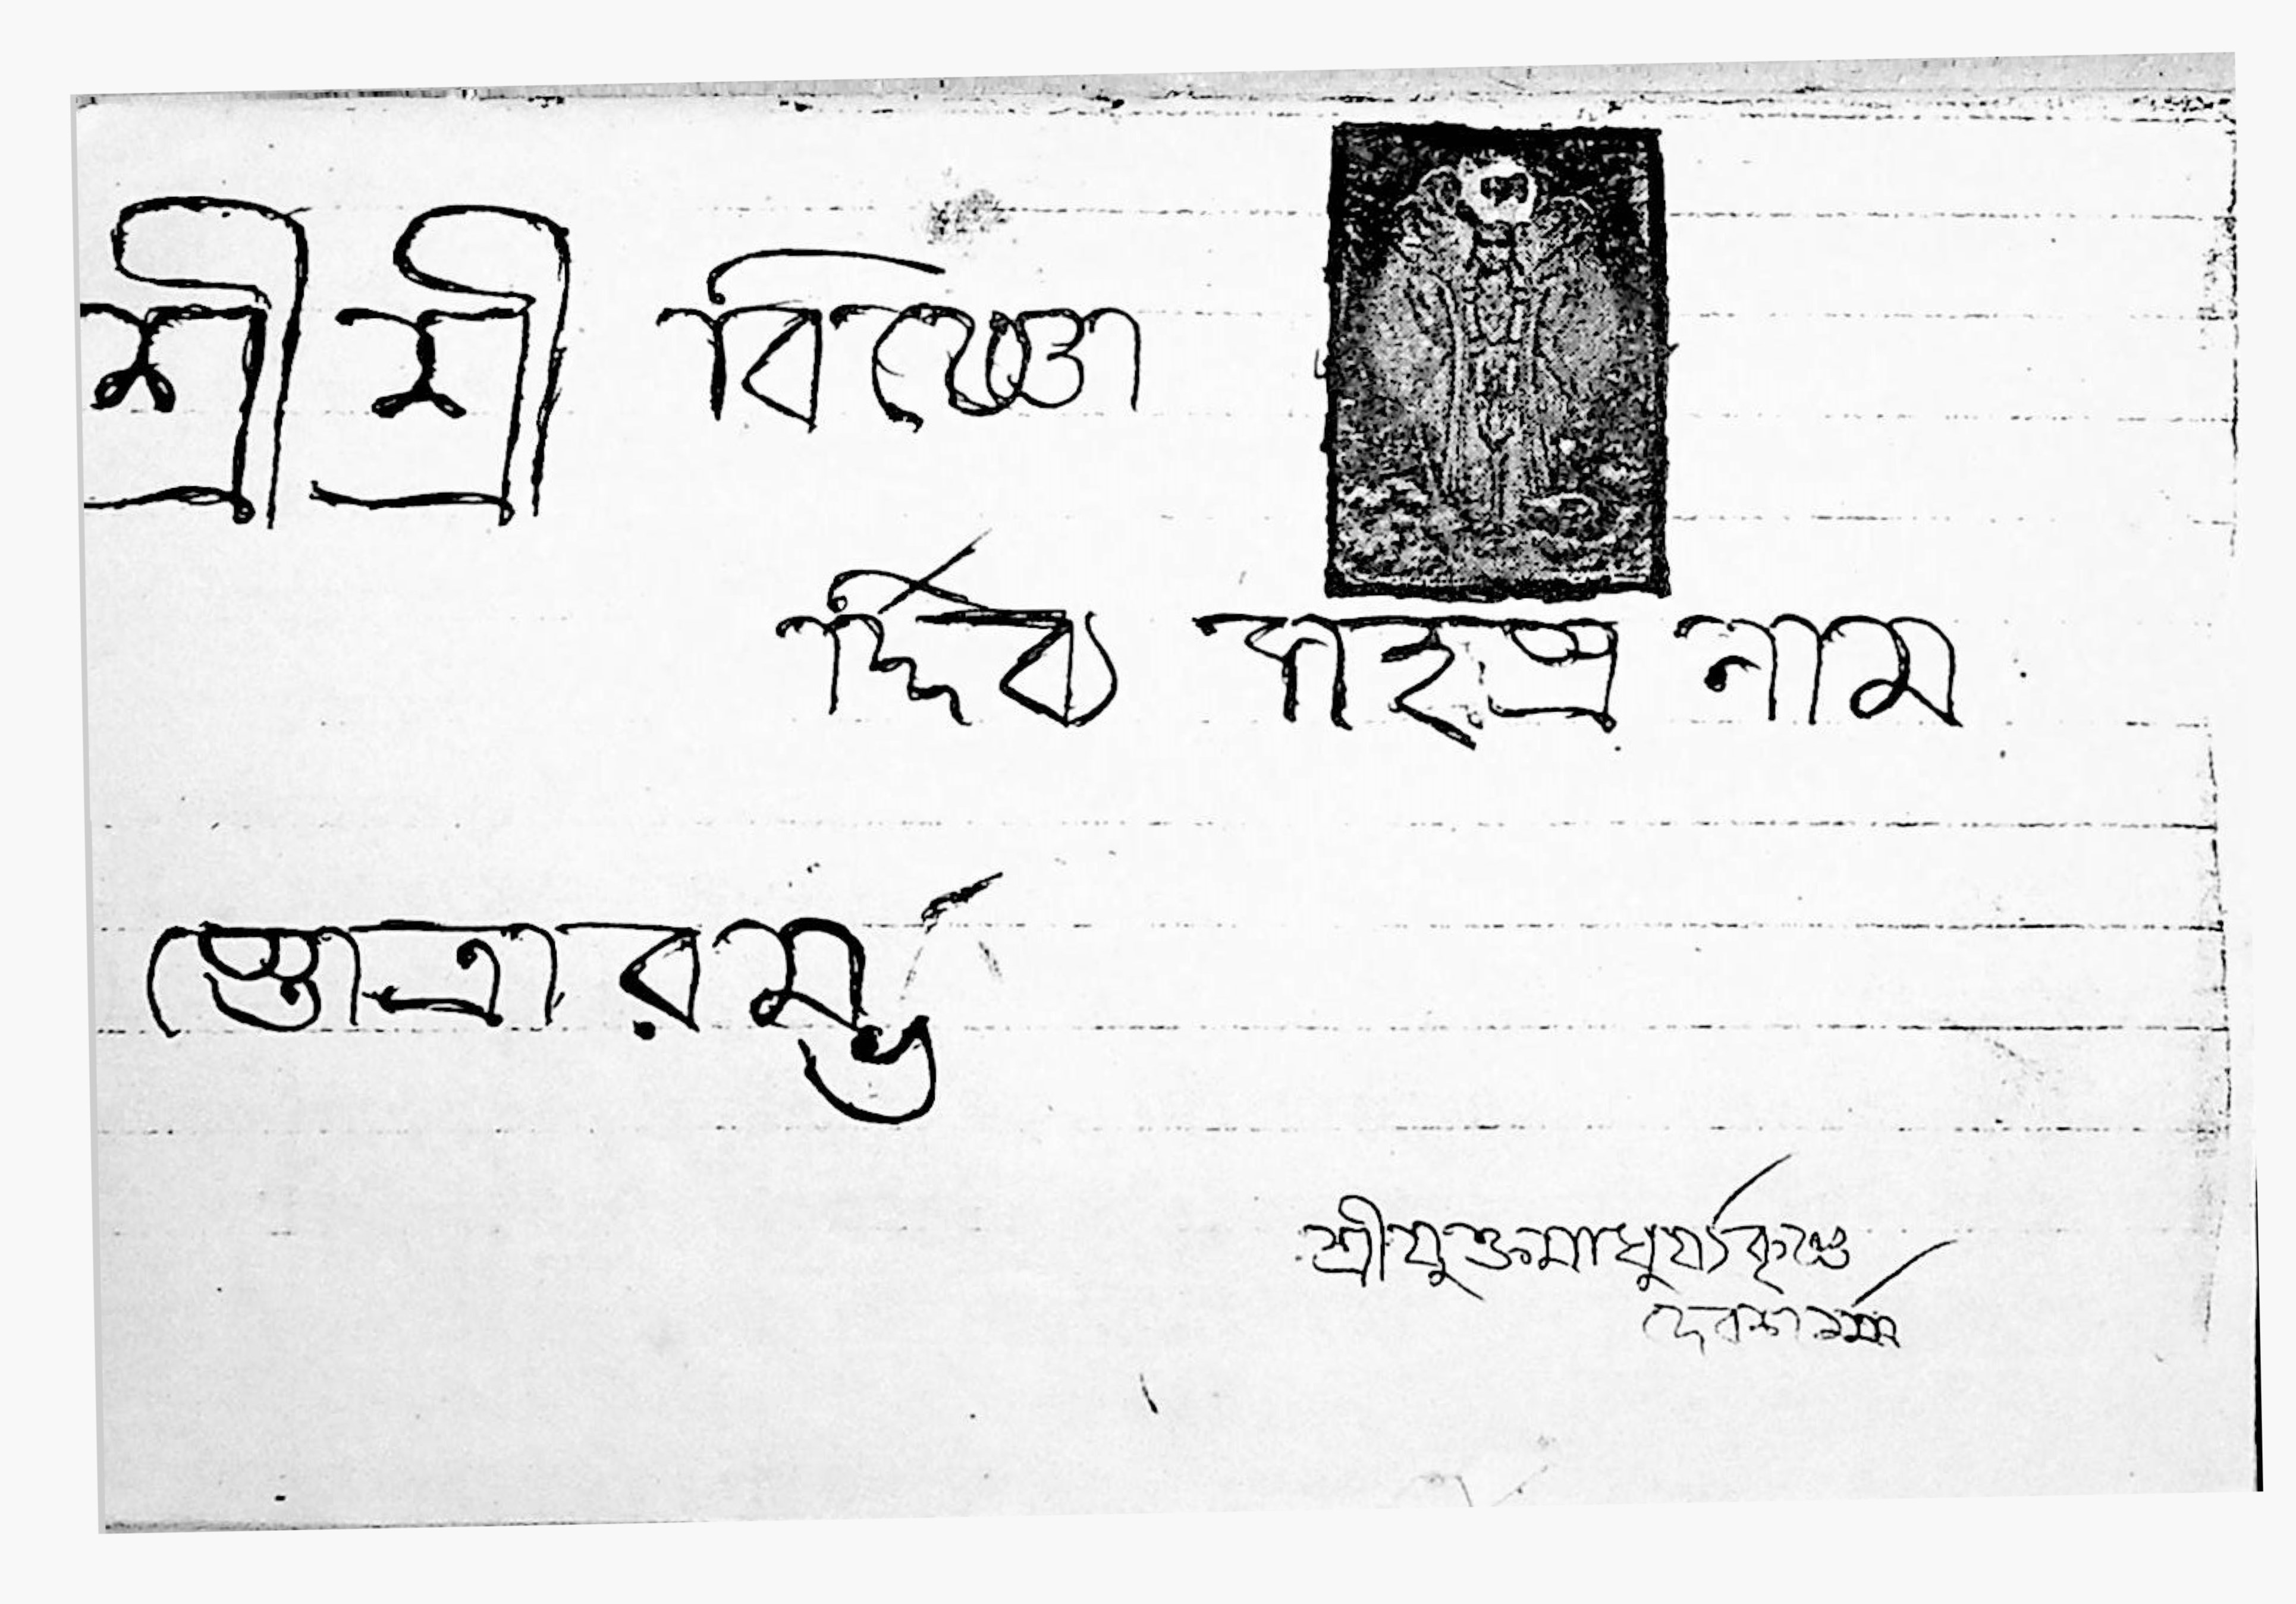 শ্রীশ্রী বিষ্ণো
র্দ্দিব্য সহস্র নাম
স্তোত্রারম্ভ
শ্রীযুক্তমাধুর্য্যকৃষ্ণ
দেবশর্ম্মা